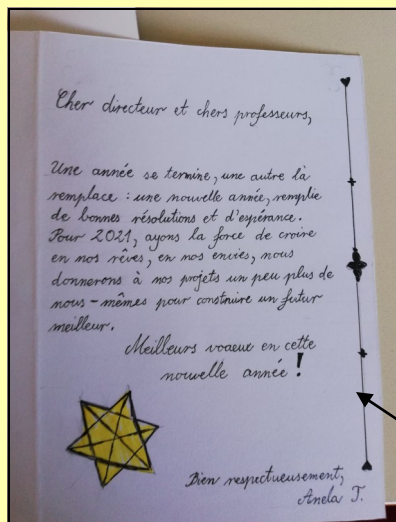 Cher directeur et chers professeurs,
Une année se termine, une autre la
remplace : une nouvelle année, remplie
de bonnes résolutions et d'espérance.
Pour 2021, ayons la force de croire
en nos rêves, en nos envies, nous
donnerons à nos projets un peu plus de
nous-mêmes pour construire un futur
meilleur.
Meilleurs voaeux en cette
nouvelle année !
Bien respectueusement,
Anela T.